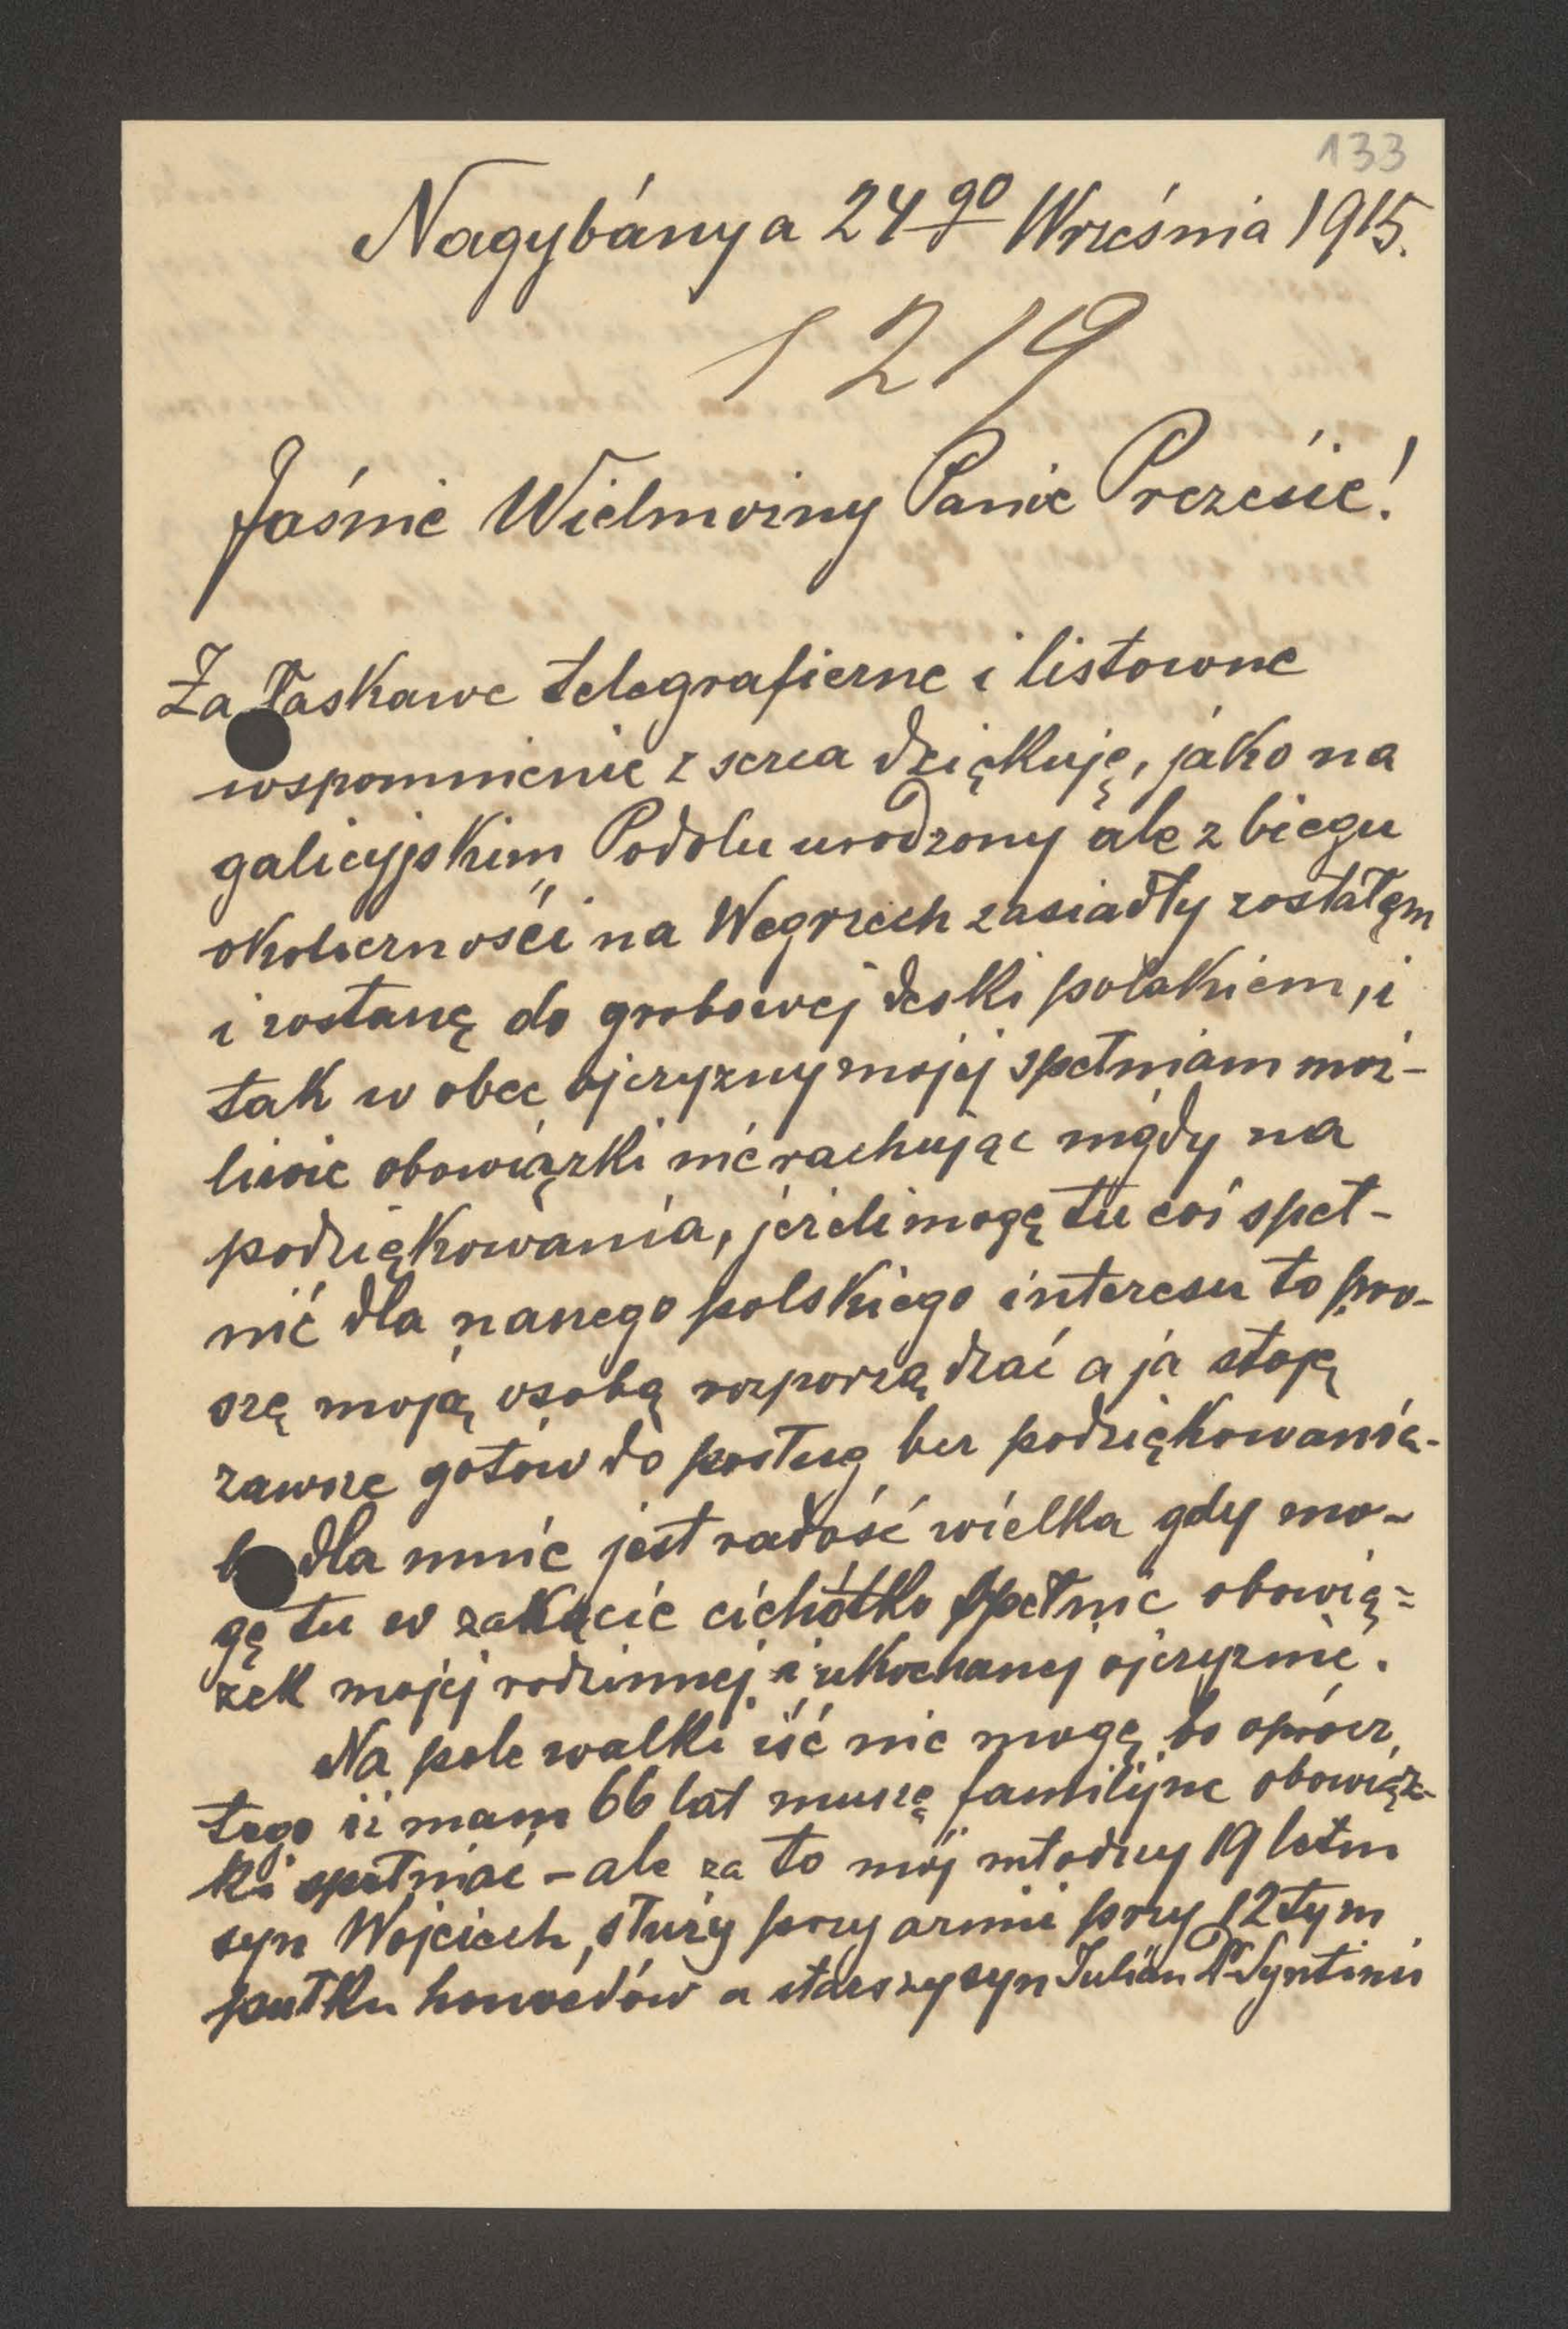 133
Nagybánya 24go Września 1915.
1219
Jaśnie Wielmożny Panie Prezesie!
Za łaskawe telegraficzne i listowne
wspomnienie z serca dziękuję, jako na
galicyjskim Podolu urodzony ale z biegu
okoliczności na Węgrzech zasiadły zostałem
i zostanę do grobowej deski polakiem, i
tak w obec ojczyzny mojej spełniam moż-
liwie obowiązki nie rachując nigdy na
podziękowania, jeżeli mogę tu coś speł-
nić dla naszego polskiego interesu to pro-
szę moją osobą rozporządzać a ja stoję
zawsze gotów do posług bez podziękowania-
b dla mnie jest radość wielka gdy mo-
gę tu w zakącie cichótko spełnic obowią=
zek mojej rodzinnej i ukochanej ojczyznie.
Na pole walki iść nie mogę bo oprócz
tego iż mam 66 lat muszę familijne obowiąz-
ki spełniać - ale za to mój młodszy 19 letni
syn Wojciech, służy przy armii przy 12tym
pułku honvedów a starszy syn Julián Dr Syntinis